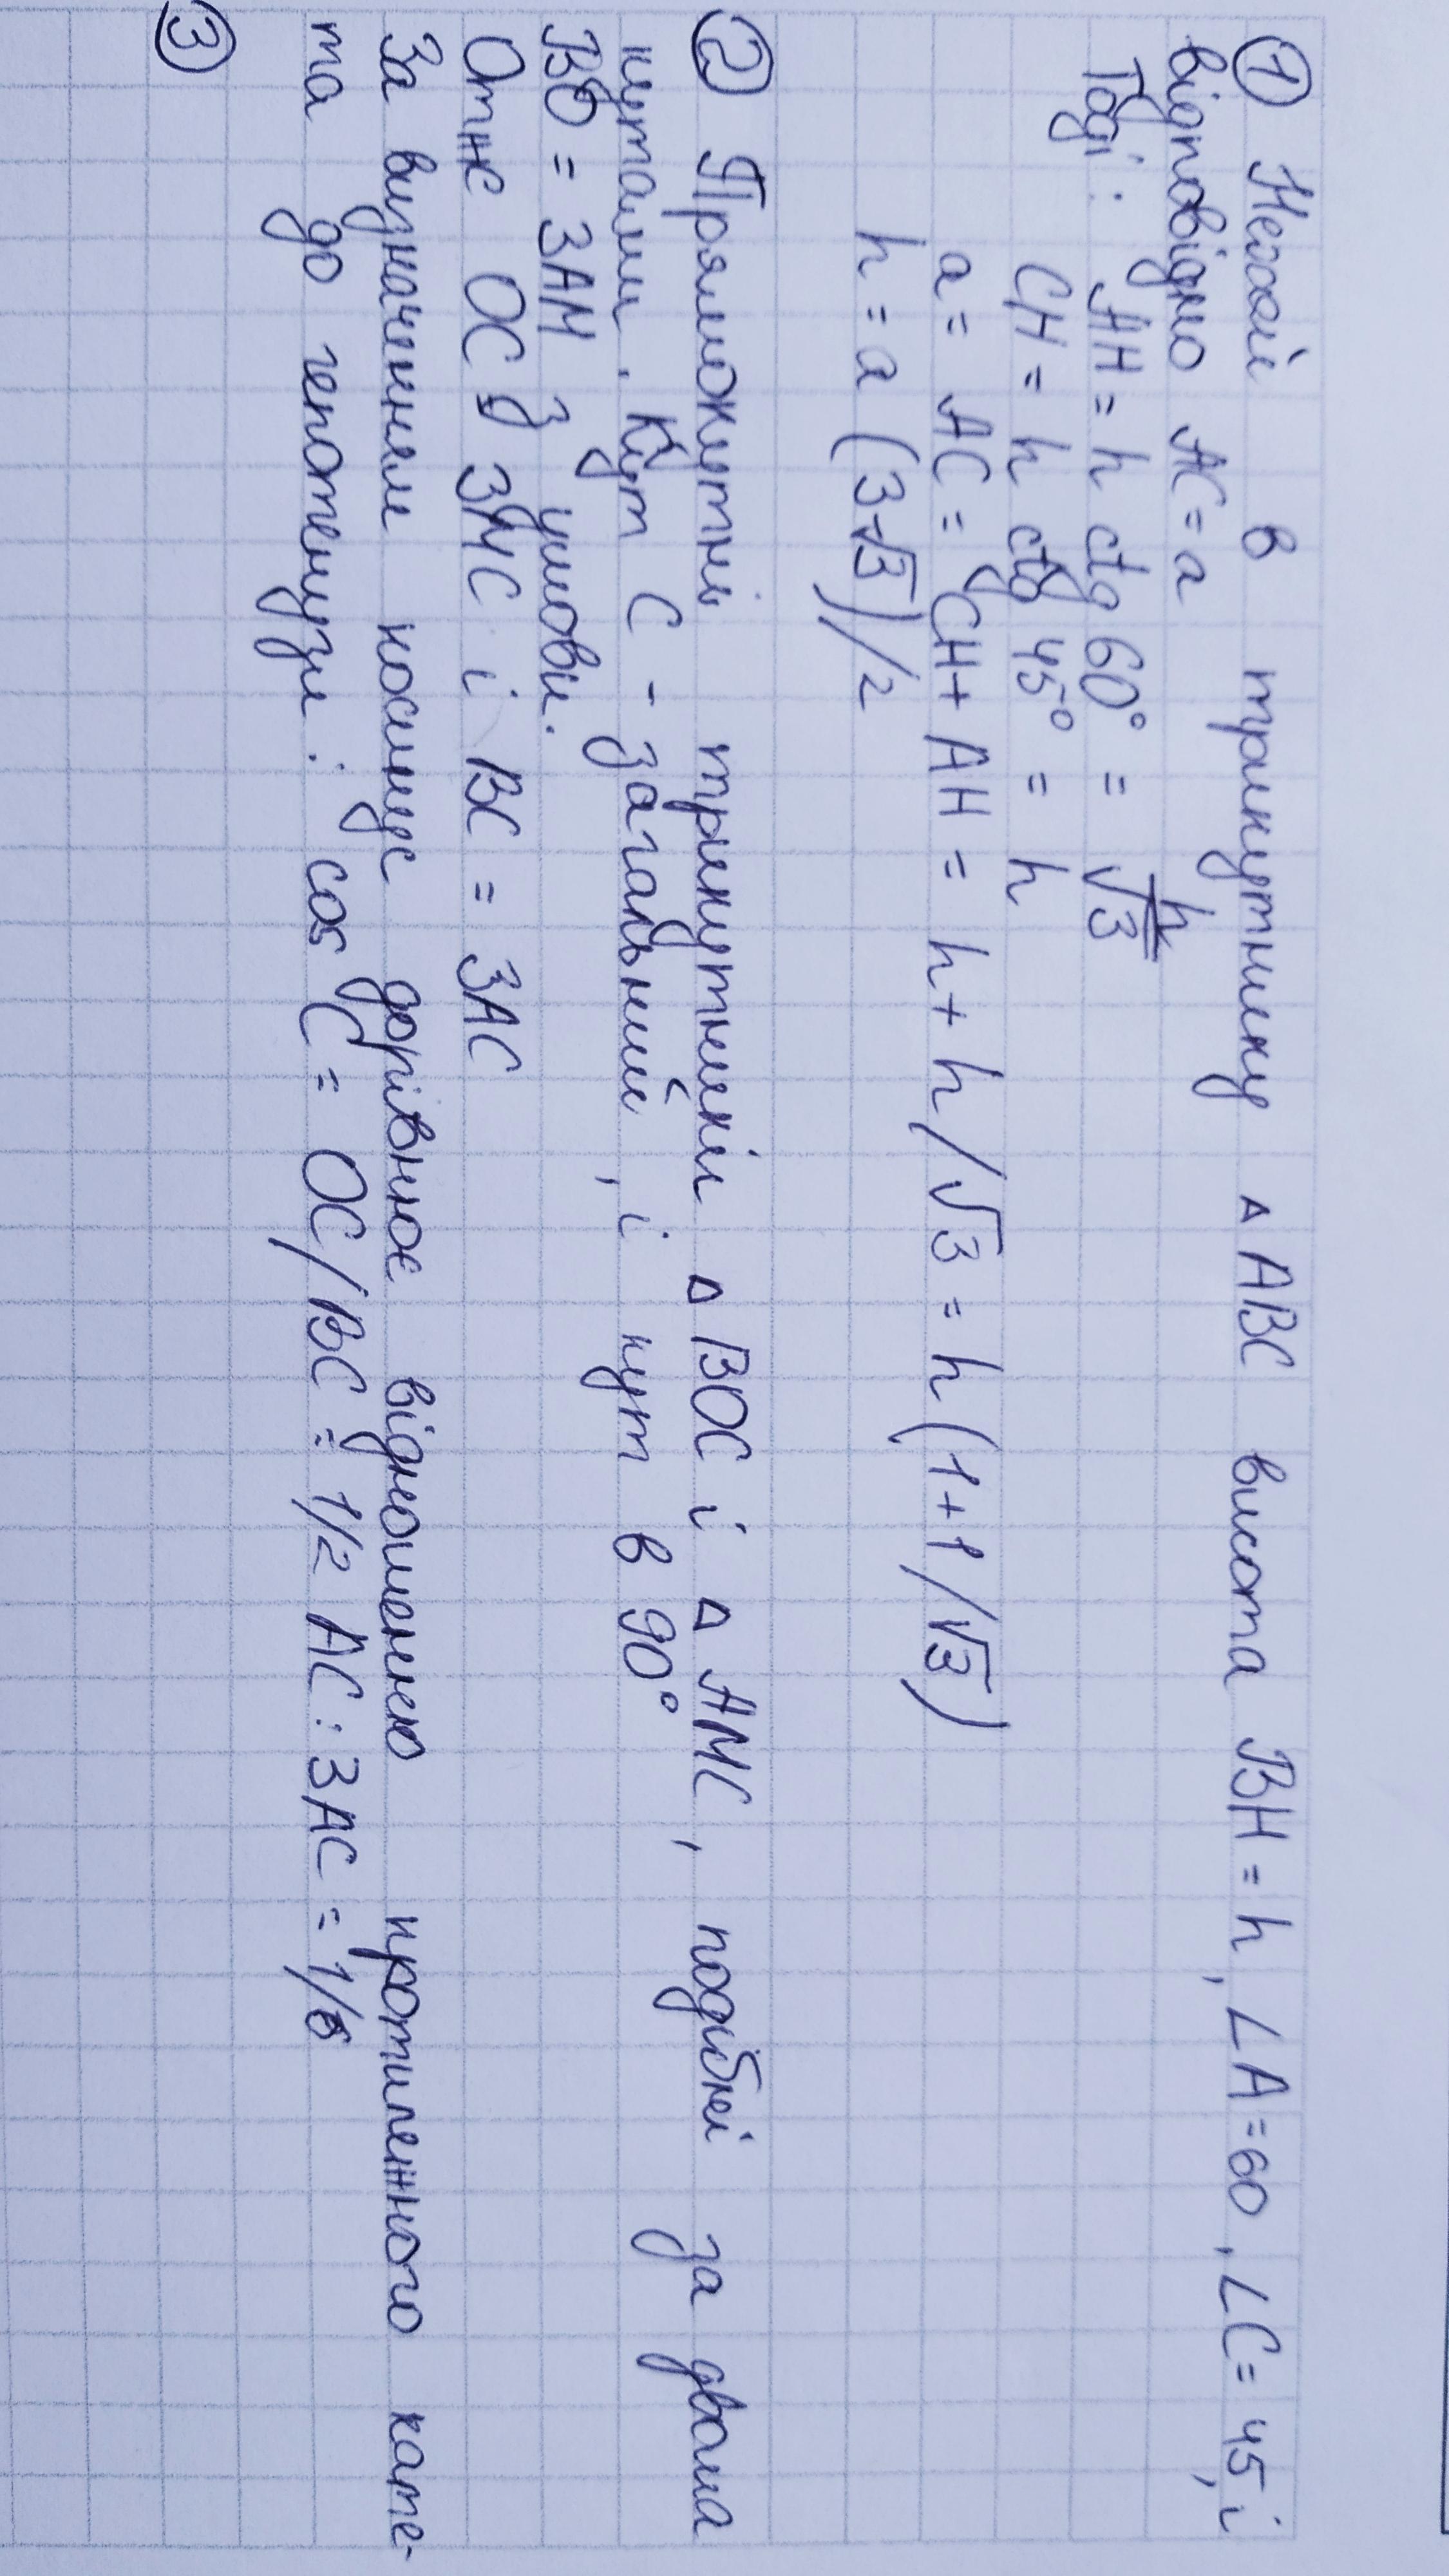 ① Нехай в трикутнику △ABC висота BH = h, ∠A = 60, ∠C = 45, і
відповідно AC = a
Тоді: AH = h ctg 60° = h/√3
CH = h ctg 45° = h
a = AC = CH + AH = h + h/√3 = h(1+1/√3)
h = a (3-√3)/2
② Прямокутні трикутники △BOC і △AMC, подібні за двома
кутами. Кут C - загальний, і кут в 90°
BO = 3AM З умови.
Отже OC = 3MC і BC = 3AC
За визначенням косинус дорівнює відношенню протилежного кате-
та до гепотенузи: cos C = OC/BC = 1/2 AC : 3AC = 1/6
③